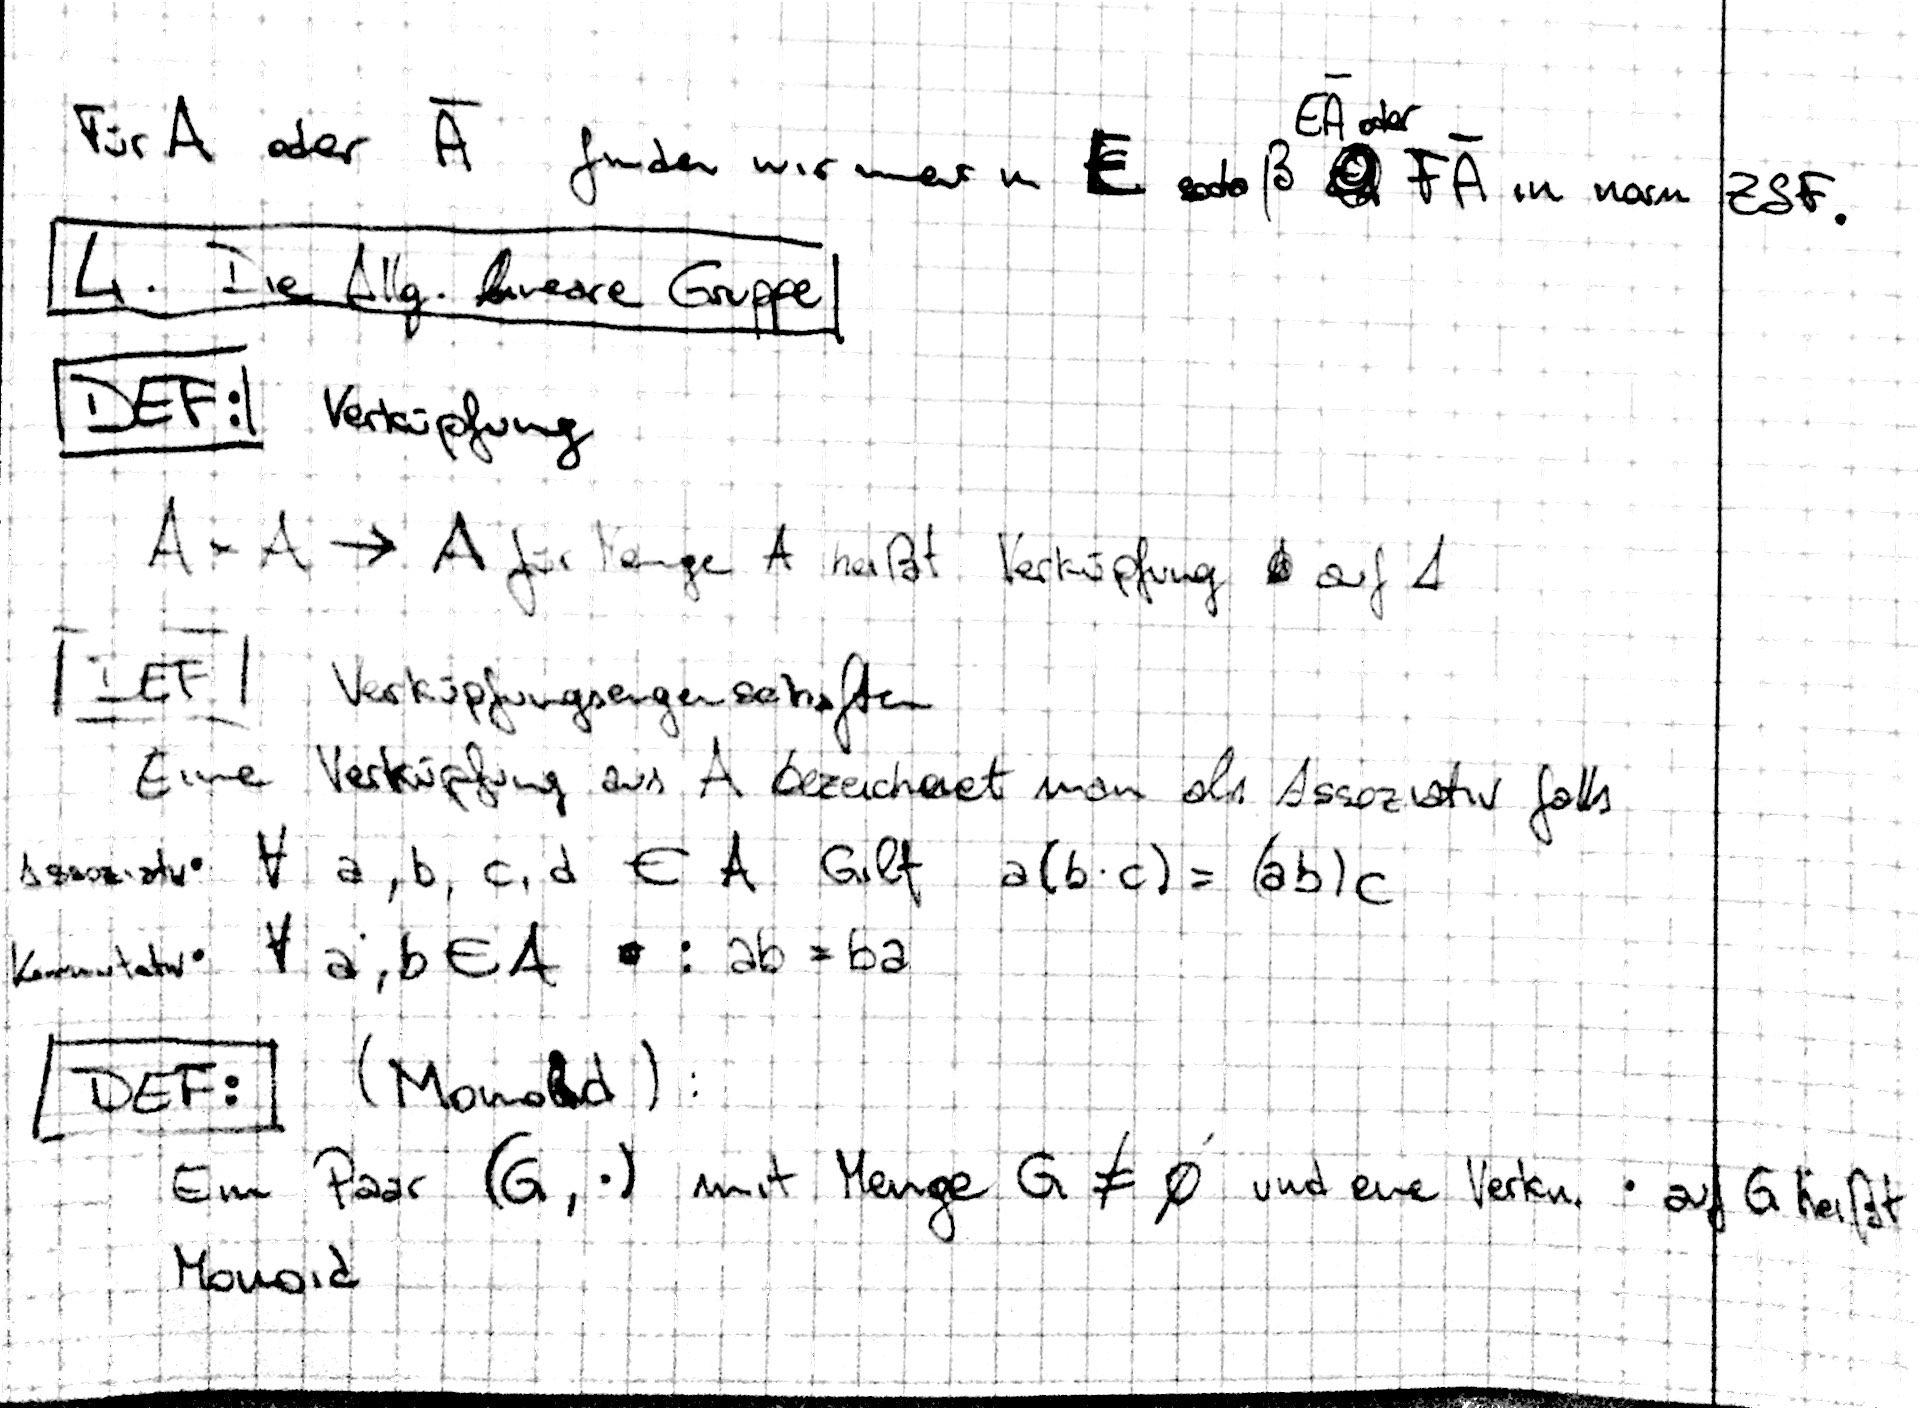 EĀ oder
Für A oder Ā finden wir immer ein E sodaß FĀ in norm ZSF.
4. Die Allg. lineare Gruppe
DEF: Verküpfung
A × A → A für Menge A heißt Verküpfung auf A
DEF Verküpfungseigenschaften
Eine Verküpfung aus A bezeichnet man als Assoziativ falls
Assoziativ • ∀ a, b, c, d ∈ A Gilt a(b·c) = (ab)c
Kommutativ • ∀ a, b ∈ A : ab = ba
DEF: (Monoid):
Ein Paar (G, ·) mit Menge G ≠ ∅ und eine Verkn. · auf G heißt
Monoid